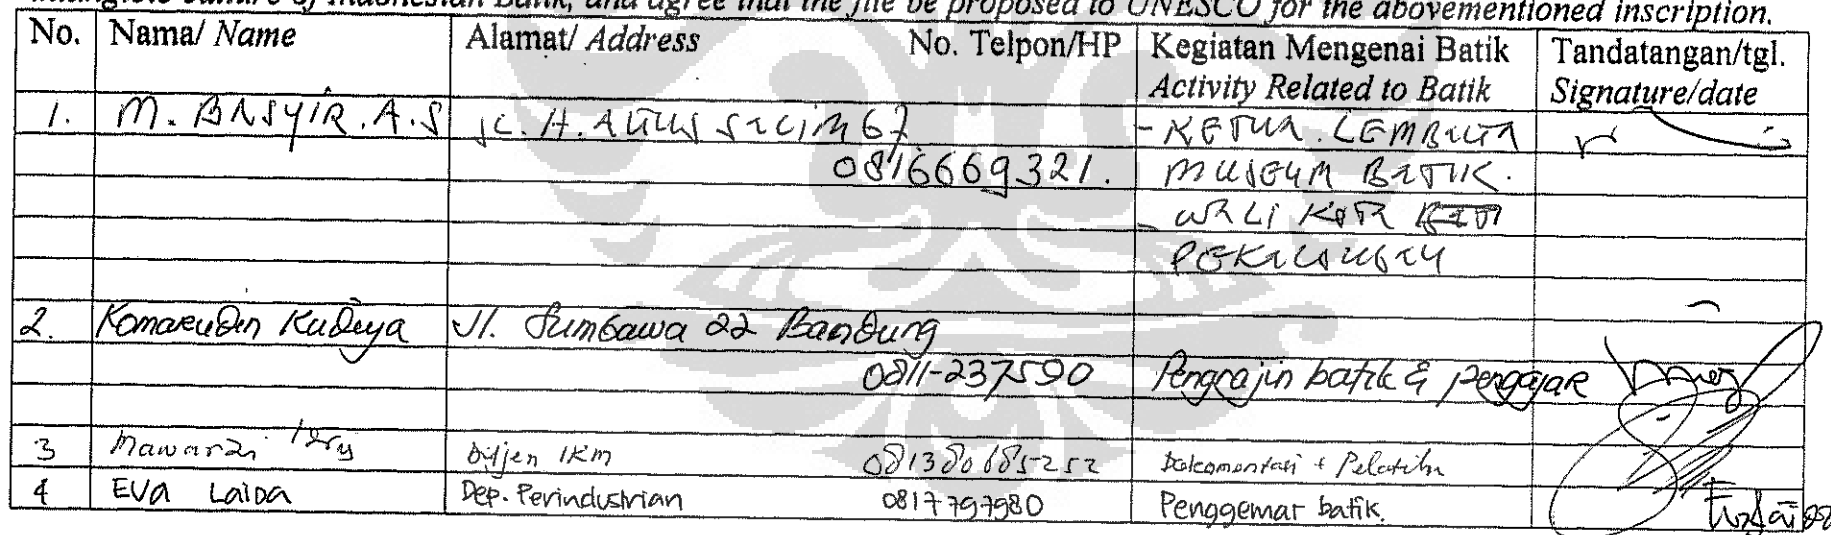 intangible culture of Indonesian Batik, and agree that the file be proposed to UNESCO for the abovementioned inscription.
No. Nama/ Name Alamat/ Address No. Telpon/HP Kegiatan Mengenai Batik Tandatangan/tgl.
Activity Related to Batik Signature/date
1. M. BASYIR.A.S JL. H. AGUS SALIM 67 - KETUA LEMBAGA
0816669321. MUSEUM BATIK.
- WALI KOTA
PEKALONGAN
2. Komarudin Kudiya Jl. Sumbawa 22 Bandung
0811-237590 Pengrajin batik & pengajar
3 Mawarzi Ditjen IKM 081380685252 Dokomentasi + Pelatihn
4 Eva Laida Dep. Perindustrian 0817797980 Penggemar batik.